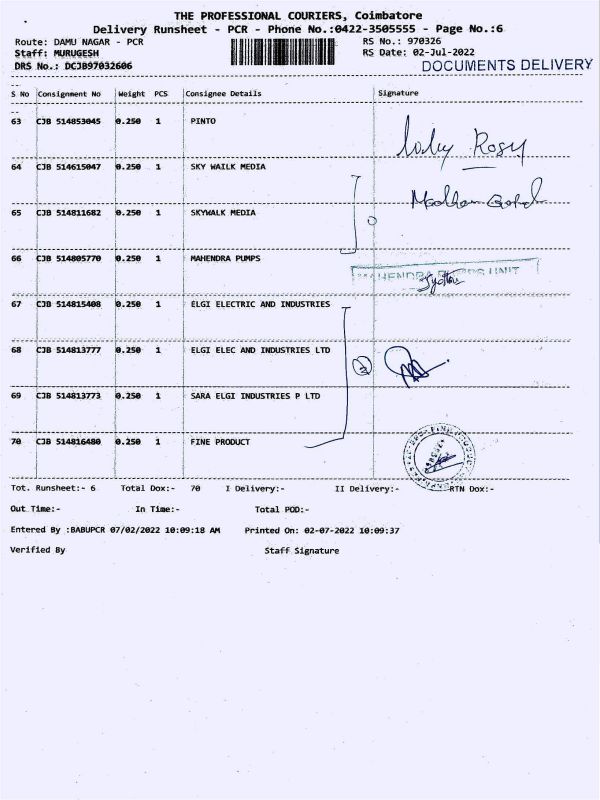 THE PROFESSIONAL COURIERS, Coimbatore
Delivery Runsheet - PCR - Phone No.:0422-3505555 - Page No.:6
Route: DAMU NAGAR - PCR RS No.: 970326
Staff: MURUGESH RS Date: 02-Jul-2022
DRS No.: DCJB97032606 DOCUMENTS DELIVERY
S No Consignment No Weight PCS Consignee Details Signature
63 CJB 514853045 0.250 1 PINTO
Rosy
64 CJB 514615047 0.250 1 SKY WAILK MEDIA
65 CJB 514811682 0.250 1 SKYWALK MEDIA
66 CJB 514805770 0.250 1 MAHENDRA PUMPS
MAHENDRA PUMPS UNIT
67 CJB 514815408 0.250 1 ELGI ELECTRIC AND INDUSTRIES
68 CJB 514813777 0.250 1 ELGI ELEC AND INDUSTRIES LTD
69 CJB 514813773 0.250 1 SARA ELGI INDUSTRIES P LTD
70 CJB 514816480 0.250 1 FINE PRODUCT
Tot. Runsheet:- 6 Total Dox:- 70 I Delivery:- II Delivery:- RTN Dox:-
Out Time:- In Time:- Total POD:-
Entered By :BABUPCR 07/02/2022 10:09:18 AM Printed On: 02-07-2022 10:09:37
Verified By Staff Signature